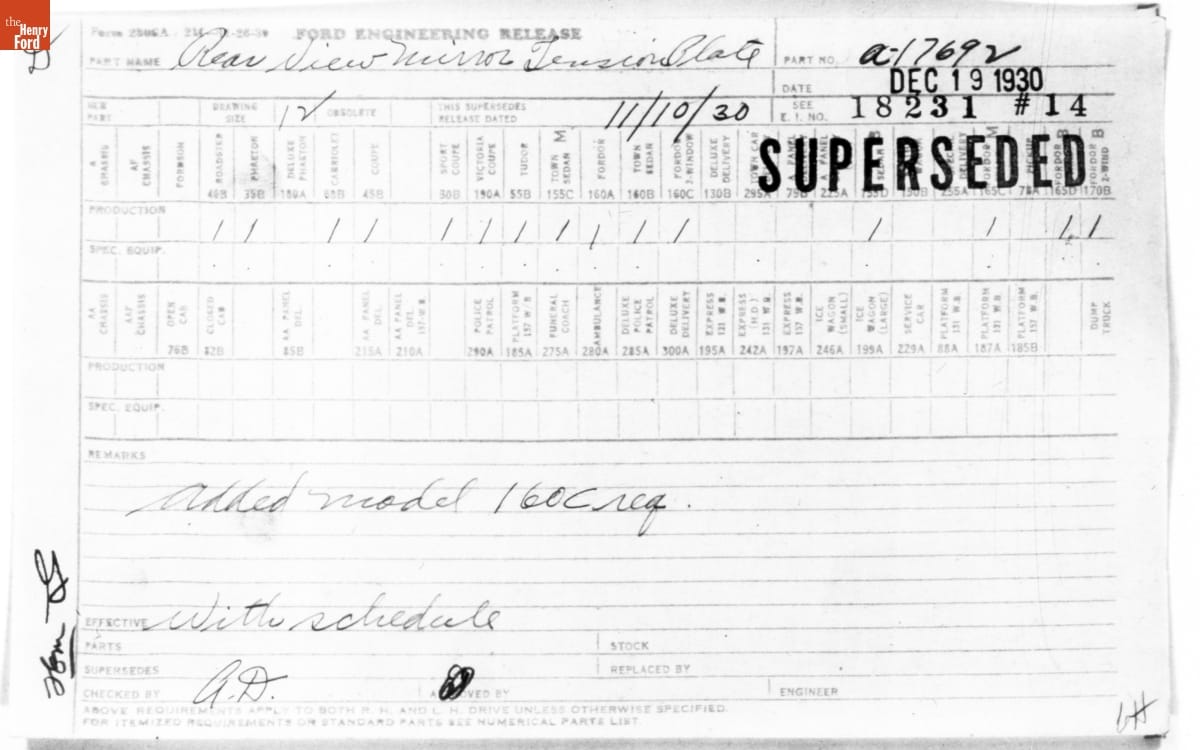 the
Henry
Ford
FORD ENGINEERING RELEASE
PART NAME Rear View Mirror Tension Plate PART NO. A-17692
DATE DEC 19 1930
NEW PART DRAWING SIZE 12 OBSOLETE THIS SUPERSEDES RELEASE DATED 11/10/30 SEE E. I. NO. 18231 #14
SUPERSEDED
A CHASSIS AF CHASSIS FORDSON ROADSTER PHAETON DELUXE PHAETON CABRIOLET COUPE SPORT COUPE VICTORIA COUPE TUDOR TOWN SEDAN M FORDOR TOWN SEDAN FORDOR 2-WINDOW DELUXE DELIVERY TOWN CAR
35B 180A 68B 45B 50B 190A 55B 155C 160A 160B 160C 130B 295A 79B 225A 155D 130B 255A 165C 78A 165D 170B
PRODUCTION
1 1 1 1 1 1 1 1 1 1 1 1 1 1 1
SPEC. EQUIP.
AA CHASSIS AAF CHASSIS OPEN CAB CLOSED CAB AA PANEL DEL. AA PANEL DEL. AA PANEL DEL. 157 W.B. POLICE PATROL PLATFORM 157 W.B. FUNERAL COACH AMBULANCE DELUXE POLICE PATROL DELUXE DELIVERY EXPRESS 131 W.B. EXPRESS (H.D.) 131 W.B. EXPRESS 157 W.B. ICE WAGON (SMALL) ICE WAGON (LARGE) SERVICE CAR PLATFORM 131 W.B. PLATFORM 131 W.B. PLATFORM 157 W.B. DUMP TRUCK
76B 82B 85B 215A 210A 290A 185A 275A 280A 285A 300A 195A 242A 197A 246A 199A 229A 88A 187A 185B
PRODUCTION
SPEC. EQUIP.
REMARKS
Added model 160C req.
EFFECTIVE With schedule
PARTS STOCK
SUPERSEDES REPLACED BY
CHECKED BY A.D. APPROVED BY ENGINEER
ABOVE REQUIREMENTS APPLY TO BOTH R. H. AND L. H. DRIVE UNLESS OTHERWISE SPECIFIED.
FOR ITEMIZED REQUIREMENTS OR STANDARD PARTS SEE NUMERICAL PARTS LIST.